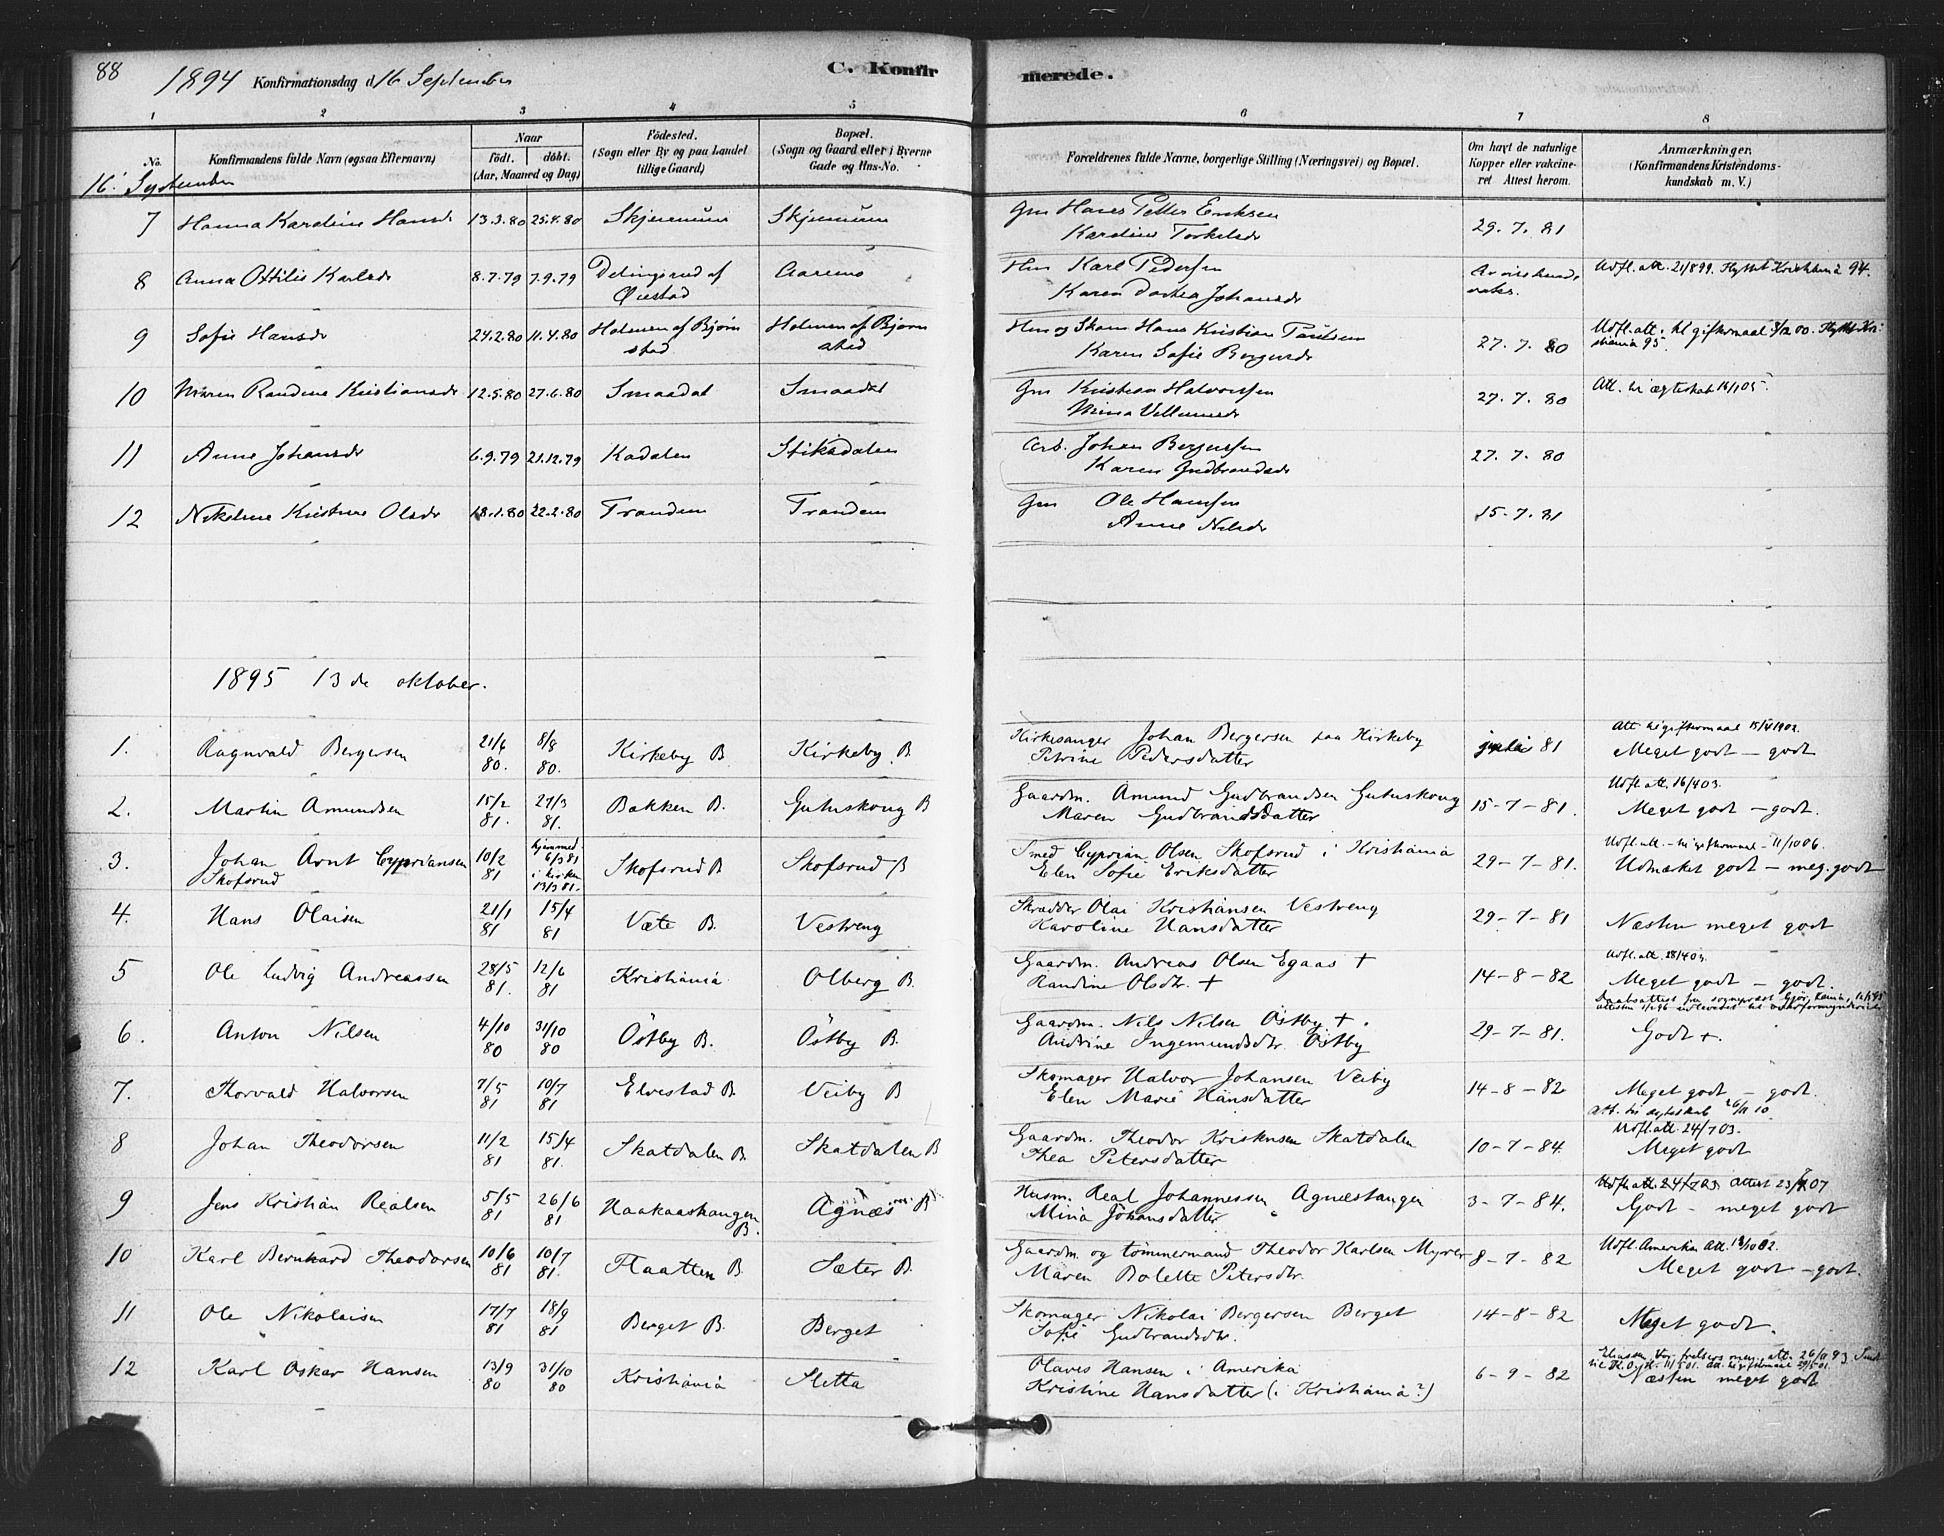 88
1894 Konfirmationsdag d 16 September
C. Konfir merede.
1 2 3 4 5 6 7 8
No.
Konfirmandens fulde Navn (ogsaa Efternavn)
Naar
født. døbt.
(Aar, Maaned og Dag)
Födested.
(Sogn eller By og paa Landet
tillige Gaard)
Bopæl.
(Sogn og Gaard eller i Byerne
Gade og Hus-No.
Forældrenes fulde Navne, borgerlige Stilling (Næringsvei) og Bopæl.
Om havt de naturlige
Kopper eller vakcine-
ret Attest herom.
Anmærkninger.
(Konfirmandens Kristendoms-
kundskab m. V.)
16. September
7 Hanna Karoline Hansdr 13.3.80 25.4.80 Gm Hans Petter Eriksen 29.7.81
Karoline Torkelsdr
8 Anna Ottilie Karlsdr 8.7.79 7.9.79 Hm Karl Pedersen
Karen Dorthea Johansdr
9 Sofie Hansdr 24.2.80 11.4.80 Holmen af Bjørn Holmen af Bjørn Hm og Skom Hans Kristian Paulsen 27.7.80
stad stad Karen Sofie Bergersdr
10 Maren Randine Kristiansdr 12.5.80 27.6.80 Smaadal Smaadal Gm Kristian Halvorsen 27.7.80
Mina Villumsdr
11 Anne Johansdr 6.9.79 21.12.79 Kadalen Stikadalen Arb. Johan Bergersen 27.7.80
Karen Gudbrandsdr
12 Nikoline Kristine Olsdr 18.1.80 22.2.80 Trandem Trandem Gm Ole Hansen 15.7.81
Anne Nilsdr
1895 13de oktober.
Att. til giftermaal 15/4 1902.
1. Ragnvald Bergersen 21/6 80. 8/8 80. Kirkeby B. Kirkeby B Kirkesanger Johan Bergersen paa Kirkeby juli 81 Meget godt – godt
Petrine Pedersdatter
Udfl. att. 16/4 03.
2. Martin Amundsen 15/2 81. 27/3 81. Bakken B. Guhnskoug B Gaardm. Amund Gudbrandsen Guhnskoug 15-7-81. Meget godt – godt.
Maren Gudbrandsdatter
Udfl. att. – til giftermaal – 11/10 06.
3. Johan Arnt Cypriansen 10/2 81 hjemmed. 6/3 81 i kirken 13/3 81. Skofsrud B Skofsrud B Smed Cyprian Olsen Skofsrud i Kristiania 29-7-81. Udmærket godt – meg. godt
Skofsrud Elen Sofie Eriksdatter
4. Hans Olaisen 21/1 81 15/4 81 Væte B. Vestreng Skrædder Olai Kristiansen Vestreng 29-7-81 Næsten meget godt
Karoline Hansdatter
Udfl. att. 28/4 03.
5 Ole Ludvig Andreassen 28/5 81. 12/6 81 Kristiania Olberg B. Gaardm. Andreas Olsen Egaas + 14-8-82 Meget godt – godt.
Randine Olsdtr. +
6. Anton Nilsen 4/10 80 31/10 80 Östby B. Östby B. Gaardm. Nils Nilsen Östby + 29-7-81. Godt +.
Andrine Ingemundsdtr. Östby
7. Thorvald Halvorsen 7/5 81 10/7 81 Elvestad B. Veiby B Skomager Halvor Johansen Veiby 14-8-82 Meget godt – godt.
Elen Marie Hansdatter Att. til ægteskab 26/11 10.
Udfl. att. 24/7 03.
8 Johan Theodorsen 11/2 81 15/4 81. Skatdalen B. Skatdalen B Gaardm. Theodor Kristensen Skatdalen 10-7-84. Meget godt
Thea Petersdatter
9 Jens Kristian Realsen 5/5 81 26/6 81 Haakaashaugen B. Agnæs B Husm. Real Johannessen Agnæstangen 3-7-84. Godt – meget godt
Mina Johansdatter
Udfl. Amerika Att.
10 Karl Bernhard Theodorsen 10/6 81 10/7 81. Flaatten B Sæter B. Gaardm. og tømmermand Theodor Karlsen Myrer 8-7-82 Meget godt – godt.
Maren Bolette Petersdtr.
11 Ole Nikolaisen 17/7 81 18/9 81 Berget B. Berget Skomager Nikolai Bergersen Berget 14-8-82 Meget godt.
Sofie Gudbrandsdtr.
12 Karl Oskar Hansen 13/9 80 31/10 80 Kristiania Sletta Olaves Hansen i Amerika 6-9-82 Næsten meget godt
Kristine Hansdatter (i Kristiania?)